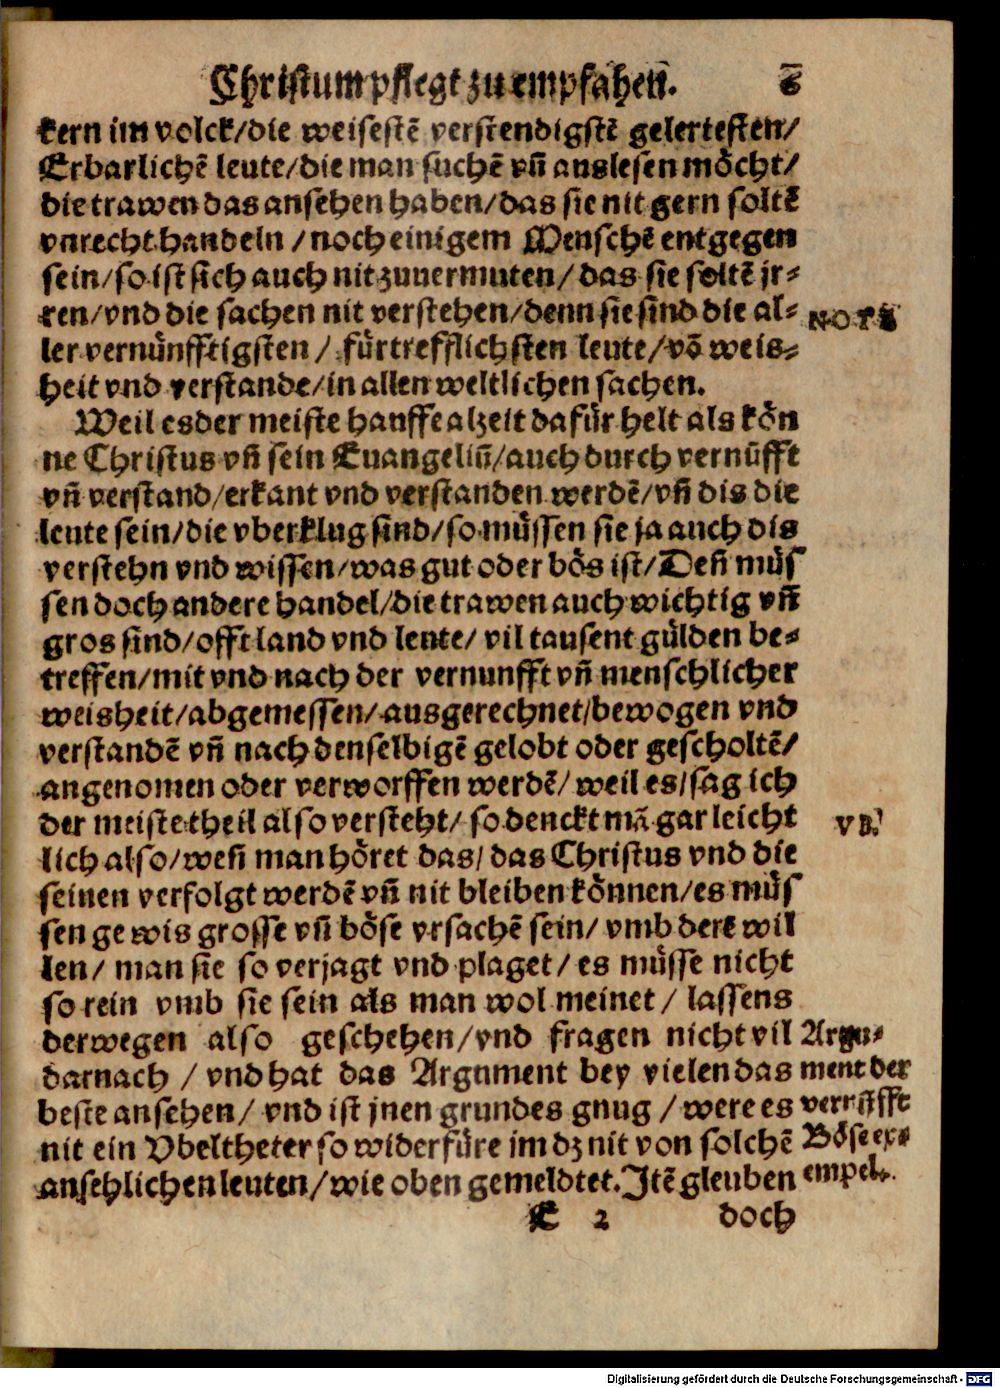 Christum pflegt zu empfahen. 6
kern im volck/die weisestẽ verstendigstẽ gelertesten/
Erbarlichẽ leute/die man suchẽ vñ auslesen möcht/
die trawen das ansehen haben/das sie nit gern soltẽ
vnrecht handeln /noch einigem Menschẽ entgegen
sein/so ist sich auch nit zuuermuten/ das sie soltẽ jr-
ren/vnd die sachen nit verstehen/denn sie sind die al- NOTA
ler vernünfftigsten / fürtrefflichsten leute/võ weis-
heit vnd verstande/in allen weltlichen sachen.
Weil es der meiste hauffe alzeit dafür helt als kön
ne Christus vñ sein Euangeliũ/auch durch vernũfft
vñ verstand/erkant vnd verstanden werdẽ/vñ dis die
leute sein/die vberklug sind/so müssen sie ja auch dis
verstehn vnd wissen/was gut oder bös ist/Deñ müs
sen doch andere handel/die trawen auch wichtig vñ
gros sind/offt land vnd leute/ vil tausent gülden be-
treffen/mit vnd nach der vernunfft vñ menschlicher
weisheit/abgemessen/ausgerechnet/bewogen vnd
verstandẽ vñ nach denselbigẽ gelobt oder gescholtẽ/
angenomen oder verworffen werdẽ/ weil es/sag ich
der meiste theil also versteht/ so denckt mã gar leicht VB.
lich also/weñ man höret das/ das Christus vnd die
seinen verfolgt werdẽ vñ nit bleiben können/es müs
sen gewis grosse vñ böse vrsachẽ sein/ vmb derẽ wil
len/ man sie so verjagt vnd plaget/ es müsse nicht
so rein vmb sie sein als man wol meinet / lassens
derwegen also geschehen/vnd fragen nicht vil Argu-
darnach / vnd hat das Argument bey vielen das ment der
beste ansehen/ vnd ist jnen grundes gnug / were es vernüfft
nit ein Vbeltheter so widerfüre im dz nit von solchẽ Böse ex-
ansehlichen leuten/wie oben gemeldtet. Jtẽ gleuben empel.
C 2 doch
Digitalisierung gefördert durch die Deutsche Forschungsgemeinschaft - DFG